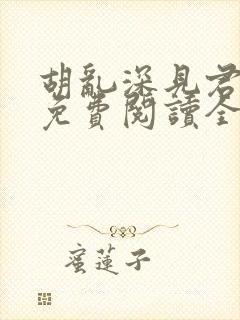 胡亂深見君
免費閱讀全
蜜蓮子